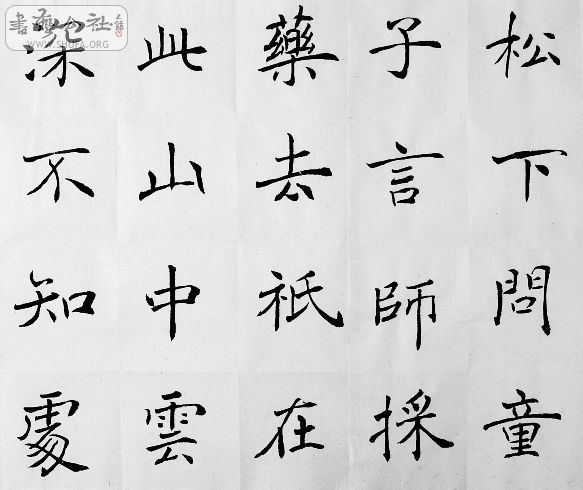 松下問童
子言師採
藥去祇在
此山中雲
深不知處
書法公社
WWW.SHUFA.ORG